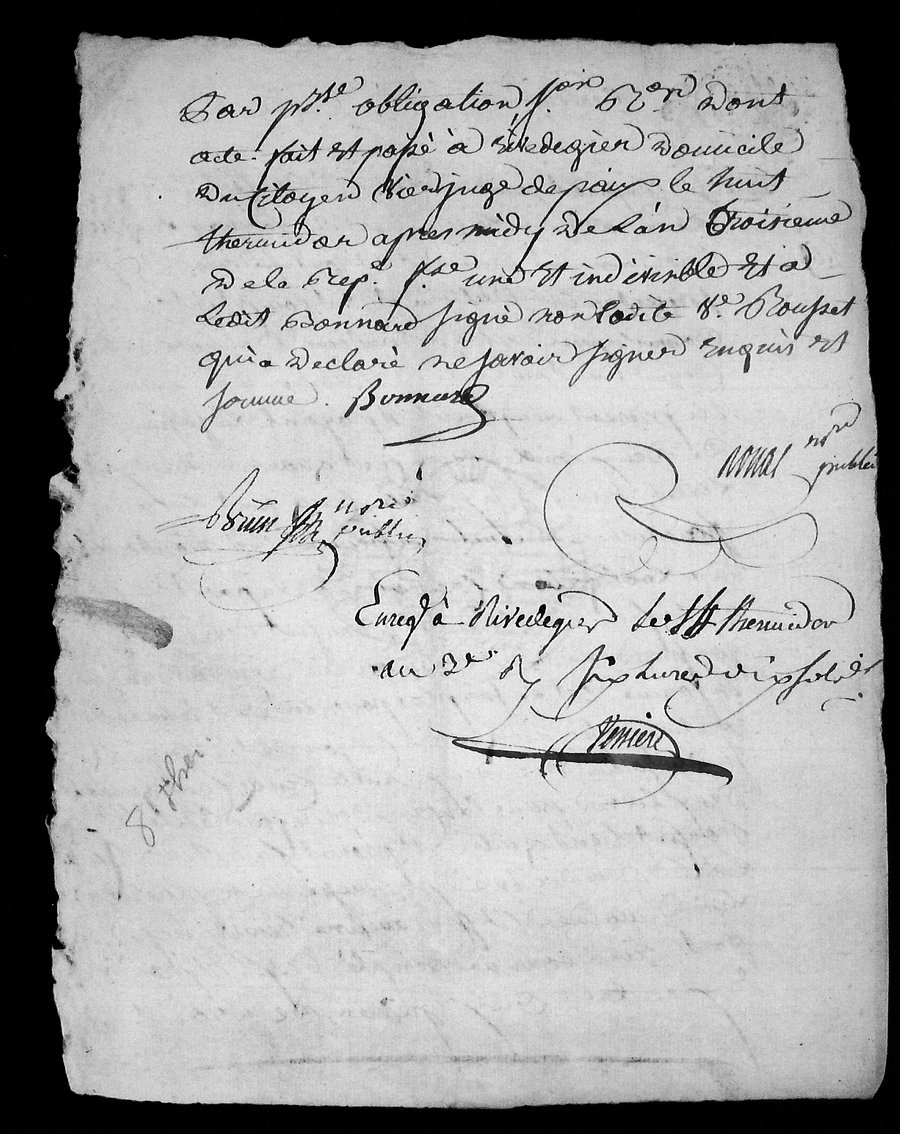 Par p.rte obligation s.on Ron dont
acte. fait et passé à rivedegier domicile
Du Citoyen juge de paix le huit
thermidor apres midy de L'an troisieme
de la Rep.e f.se une et indivisible et a
Ledit Bonnard signé non ladite V.e Rousset
qui a declaré ne savoir signer enquis et
sommé. Bonnard
nore
public
nore
public
Enreg.é à Rivedegier le thermidor
an 3.e six livres dix sols
8 ther.